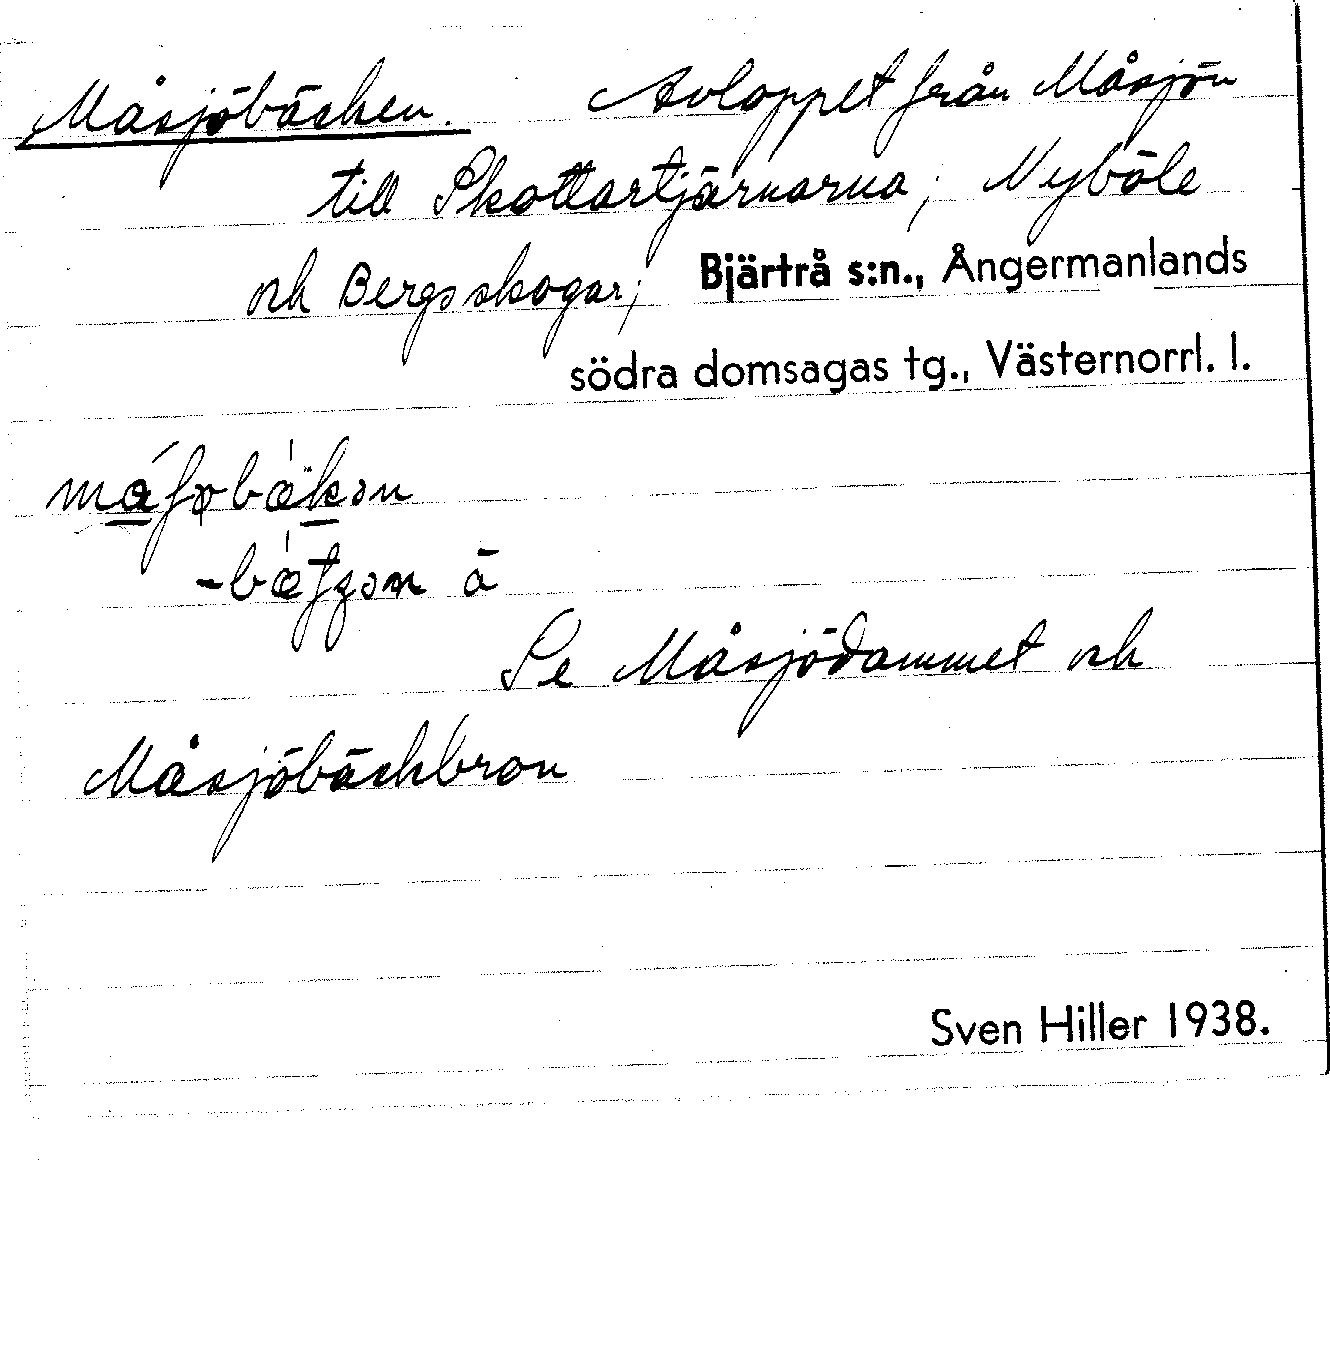 Måsjöbäcken. Avloppet från Måsjön
till Skottartjärnarna; Nyböle
och Bergsskogar; Bjärtrå s:n., Ångermanlands
södra domsagas tg., Västernorrl. l.
ā
Se Måsjödammet och
Måsjöbäckbron
Sven Hiller 1938.